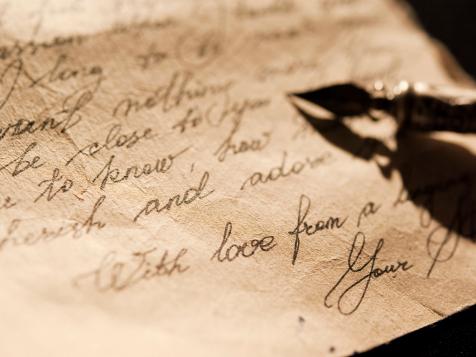 I long to be
want nothing more
be close to you
to know, how
cherish and adore
With love from a
Your